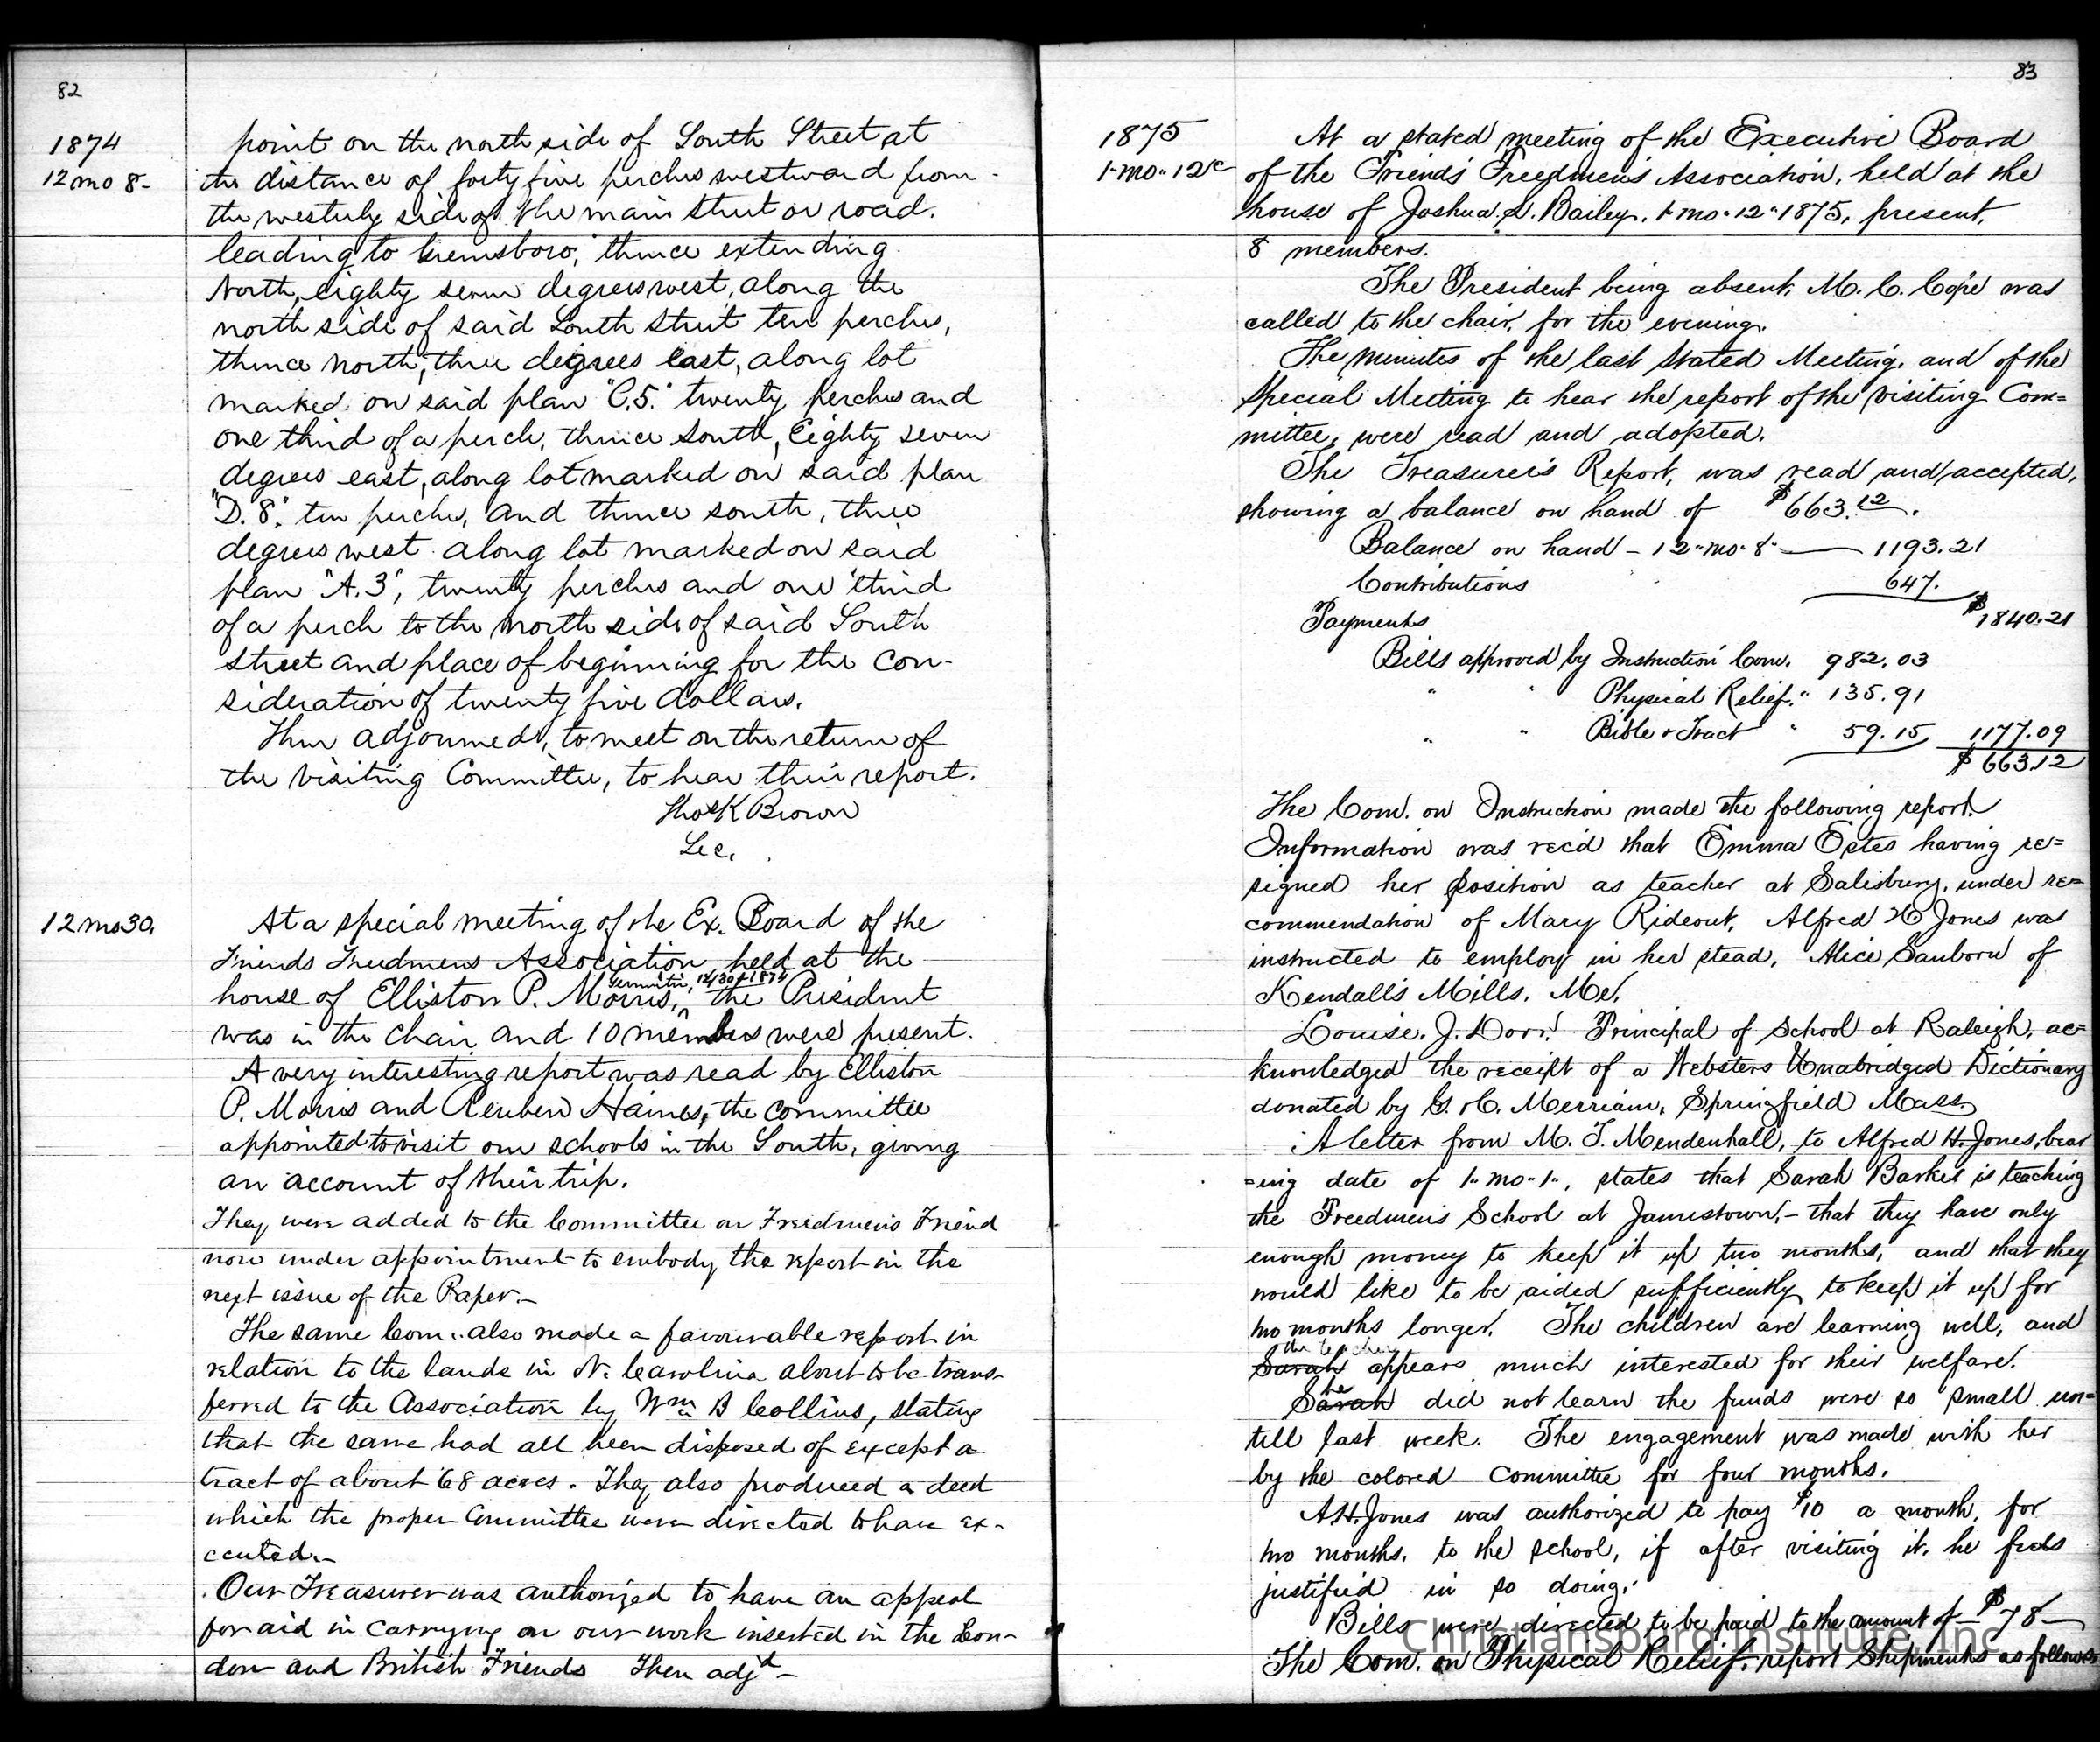 82
1874
12 mo 8-
point on the north side of South Street at
the distance of forty five perches westward from
the westerly side of the main Street or road.
leading to Greensboro; thence extending
North, eighty seven degrees west, along the
north side of said South Street ten perches,
thence north, three degrees east, along lot
marked on said plan "C.5." twenty perches and
one third of a perch, thence south, Eighty seven
degrees east, along lot marked on said plan
"D. 8." ten perches, and thence south, three
degrees west along lot marked on said
plan "A. 3", twenty perches and one third
of a perch to the north side of said South
Street and place of beginning for the con-
sideration of twenty five dollars.
Then adjourned, to meet on the return of
the Visiting Committee, to hear their report.
Thos K Brown
Sec.
12 mo 30,
At a special meeting of the Ex. Board of the
Friends Freedmens Association held at the
house of Elliston P. Morris, Germantn, 12/30th 1874 the President
was in the chair and 10 members were present.
A very interesting report was read by Elliston
P. Morris and Reuben Haines, the committee
appointed to visit our schools in the South, giving
an account of their trip.
They were added to the Committee on Freedmen's Friend
now under appointment to embody the report in the
next issue of the Paper.-
The same Com: also made a favourable report in
relation to the lands in N. Carolina about to be trans-
ferred to the Association by Wm B Collins, stating
that the same had all been disposed of except a
tract of about 68 acres. They also produced a deed
which the proper Committee were directed to have ex-
ecuted.-
Our Treasurer was authorized to have an appeal
for aid in carrying on our work inserted in the Lon-
don and British Friends Then adjd -
83
1875
1-mo-12
At a stated meeting of the Executive Board
of the Friends' Freedmen's Association, held at the
house of Joshua L. Bailey, 1-mo-12-1875, present,
8 members.
The President being absent, M. C. Cope was
called to the chair, for the evening.
The minutes of the last stated Meeting, and of the
Special Meeting to hear the report of the Visiting Com=
mittee, were read and adopted.
The Treasurer's Report, was read and accepted,
showing a balance on hand of $663.12.
Balance on hand - 12-mo-8- 1193.21
Contributions 647.
Payments $1840.21
Bills approved by Instruction Com. 982.03
" " Physical Relief " 135.91
" " Bible & Tract " 59.15 1177.09
$663.12
The Com. on Instruction made the following report.
Information was rec'd that Emma Estes having re=
signed her position as teacher at Salisbury, under re=
commendation of Mary Rideout, Alfred H Jones was
instructed to employ in her stead, Alice Sanborn of
Kendall's Mills, Me.
Louise. J. Dorr. Principal of School at Raleigh, ac=
knowledged the receipt of a Websters Unabridged Dictionary
donated by G. & C. Merriam, Springfield Mass.
A letter from M. J. Mendenhall, to Alfred H. Jones, bear
=ing date of 1-mo-1-, states that Sarah Barker is teaching
the Freedmen's School at Jamestown,- that they have only
enough money to keep it up two months, and that they
would like to be aided sufficiently to keep it up for
two months longer. The children are learning well, and
the teacher
Sarah appears much interested for their welfare.
Sarah he did not learn the funds were so small un=
till last week. The engagement was made with her
by the colored committee for four months.
A.H. Jones was authorized to pay $10 a month, for
two months, to the school, if after visiting it, he feels
justified in so doing.
Bills were directed to be paid to the amount of $78-
The Com. on Physical Relief, report Shipments as follows
Christiansburg Institute, Inc